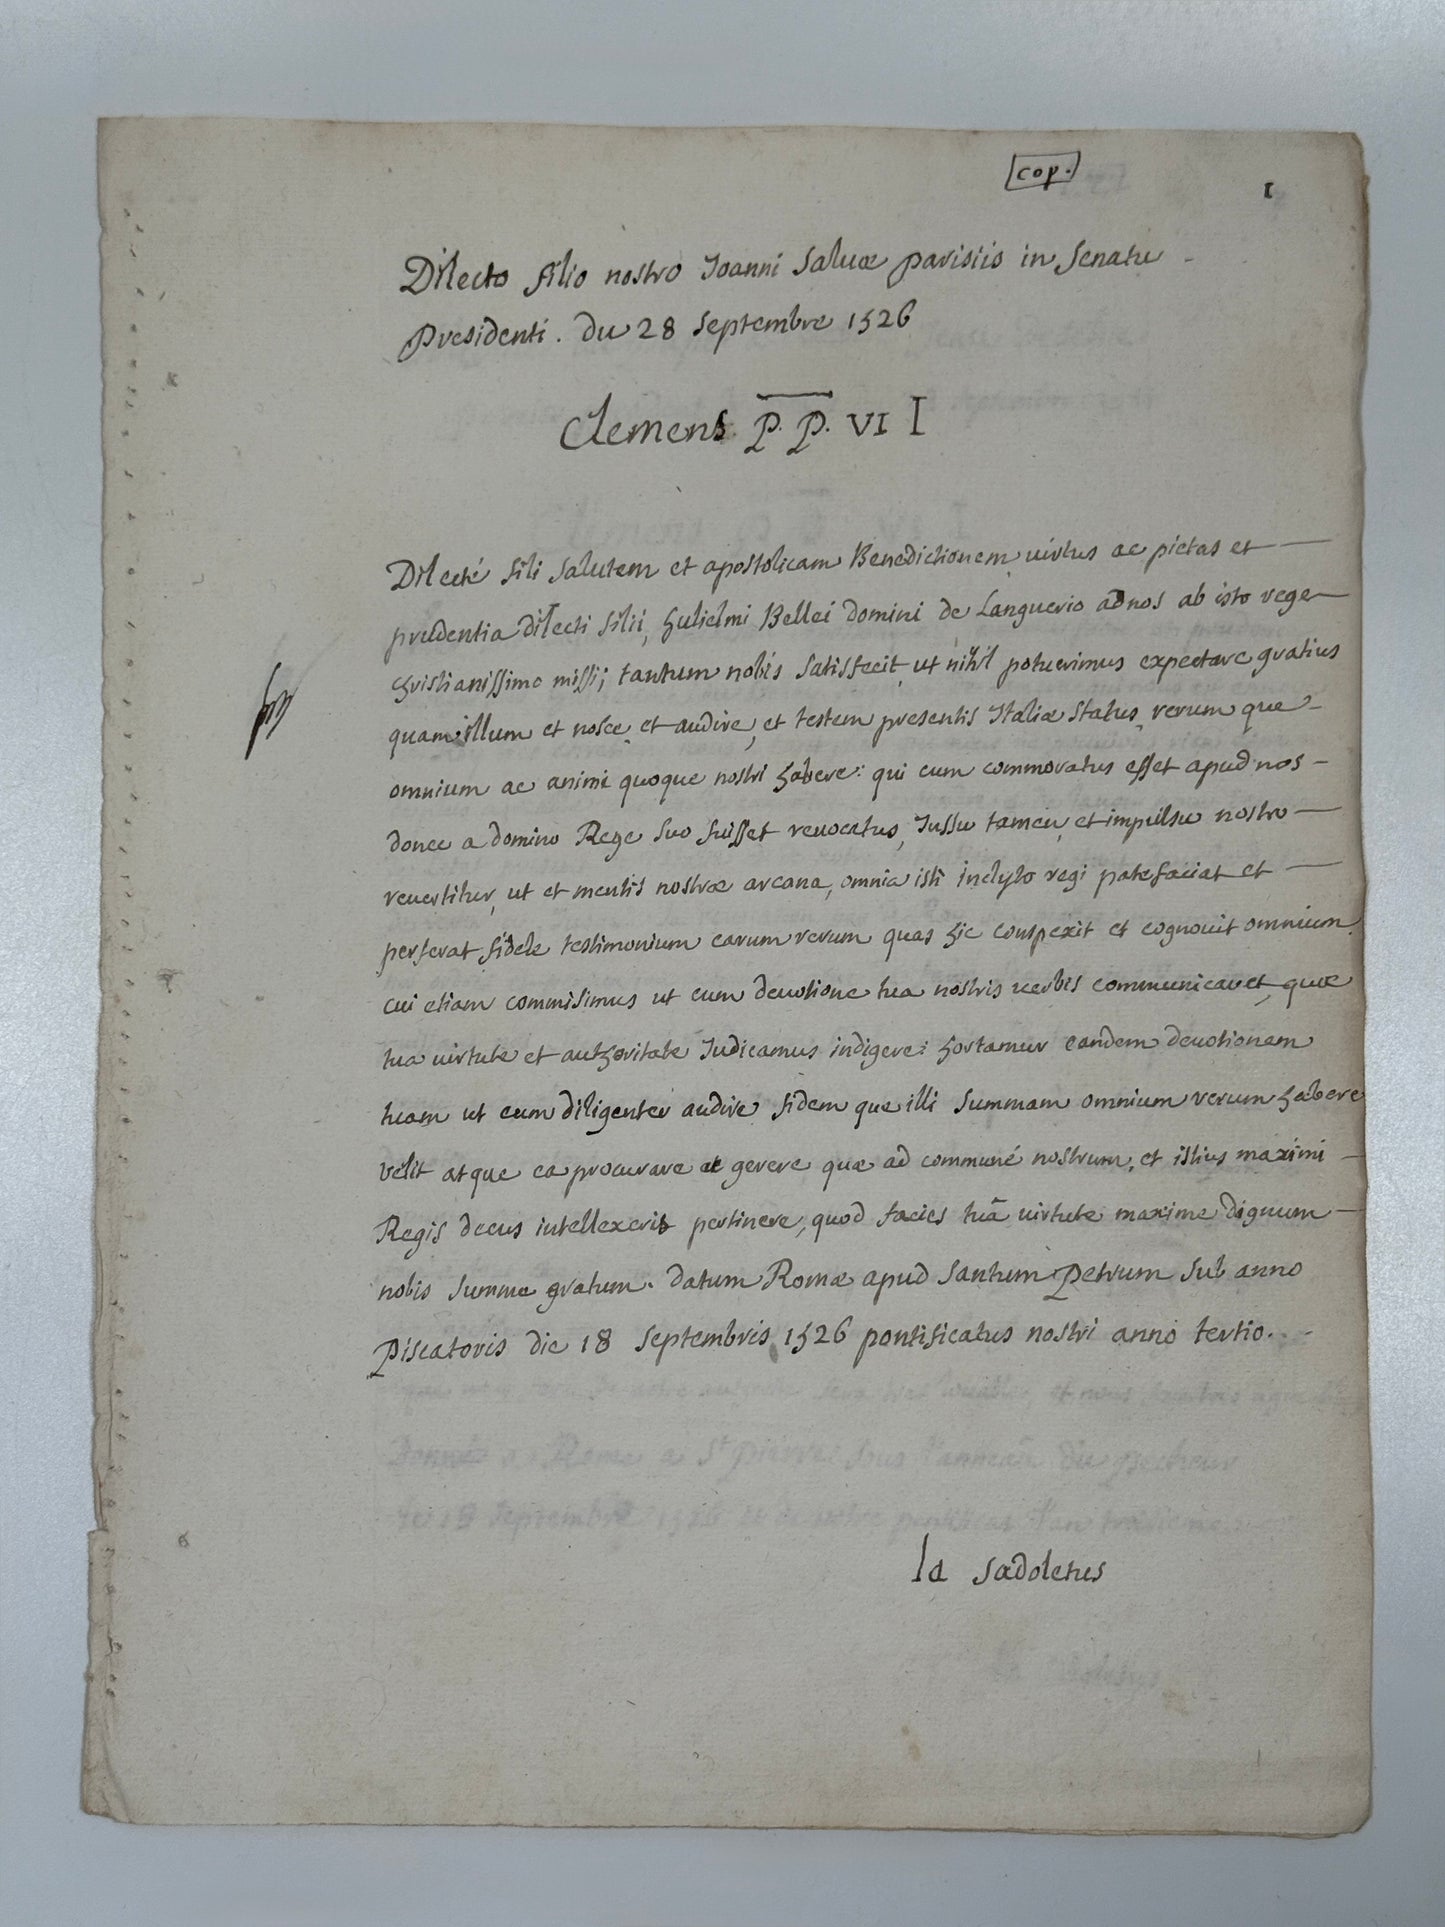 cop.
1
Dilecto filio nostro Joanni Saluæ parisiis in Senatu
Presidenti. du 28 septembre 1526
Clemens. P. P. VII
Dilecté fili Salutem et apostolicam Benedictionem uirtus ac pietas et
prudentia dilecti filii, Gulielmi Bellei domini de Languerio ad nos ab isto rege
christianissimo missi; tantum nobis satisfecit, ut nihil potuerimus expectare gratius
quam illum et nosce et audire, et testem presentis Italiæ status, rerum que
omnium ac animi quoque nostri habere: qui cum commoratus esset apud nos
donec a domino Rege suo fuisset reuocatus, Jussu tamen, et impulsu nostro
reuertitur, ut et mentis nostræ arcana, omnia isti inclyto regi patefaciat et
perferat fidele testimonium earum rerum quas hic conspexit et cognouit omnium
cui etiam commisimus ut cum deuotione tua nostris uerbis communicaret, quæ
tua uirtute et authoritate Judicamus indigere: hortamur eandem deuotionem
tuam ut eum diligenter audire fidem que illi summam omnium rerum habere
velit atque ea procurare et gerere quæ ad communé nostrum, et istius maximi
Regis decus intellexeris pertinere, quod facies tuâ uirtute maxime dignum
nobis summe gratum. datum Romæ apud Santum Petrum Sub anno
Piscatoris die 18 septembris 1526 pontificatus nostri anno tertio.
Donné a Rome a St pierre sous l'anneau du pecheur
le 18 septembre 1526
Ia Sadoletus